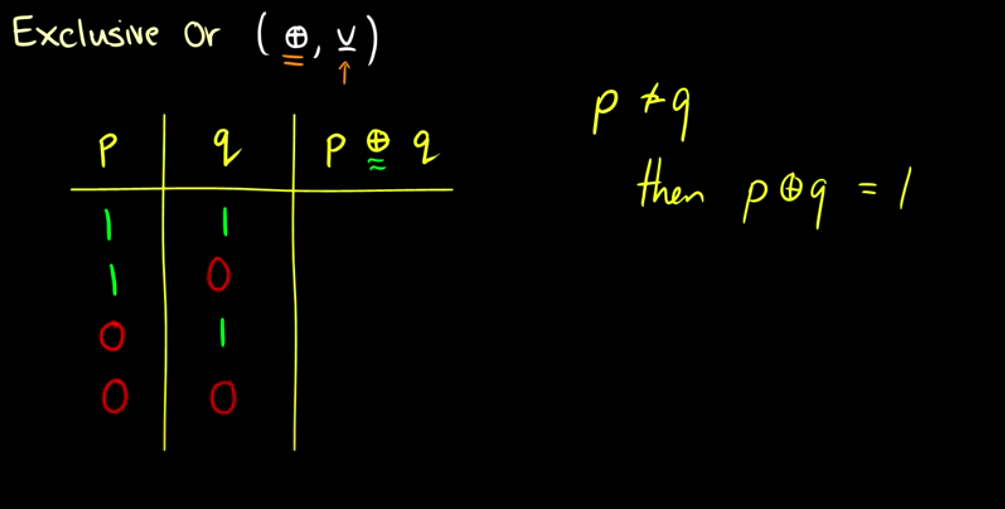 Exclusive Or (⊕, ⊻)
p q p ⊕ q
1 1
1 0
0 1
0 0
p ≠ q
then p ⊕ q = 1